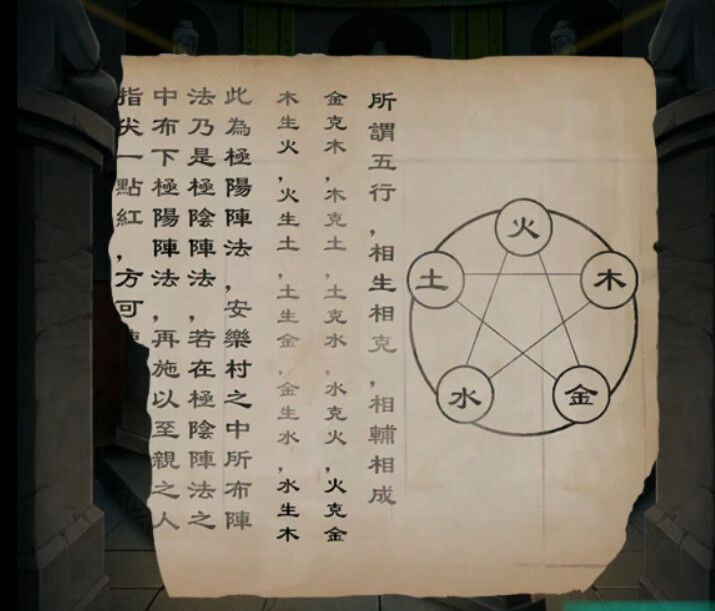 所謂五行，相生相克，相輔相成
金克木，木克土，土克水，水克火，火克金
木生火，火生土，土生金，金生水，水生木
此為極陽陣法，安樂村之中所布陣
法乃是極陰陣法，若在極陰陣法之
中布下極陽陣法，再施以至親之人
指尖一點紅，方可
火
土
木
水
金